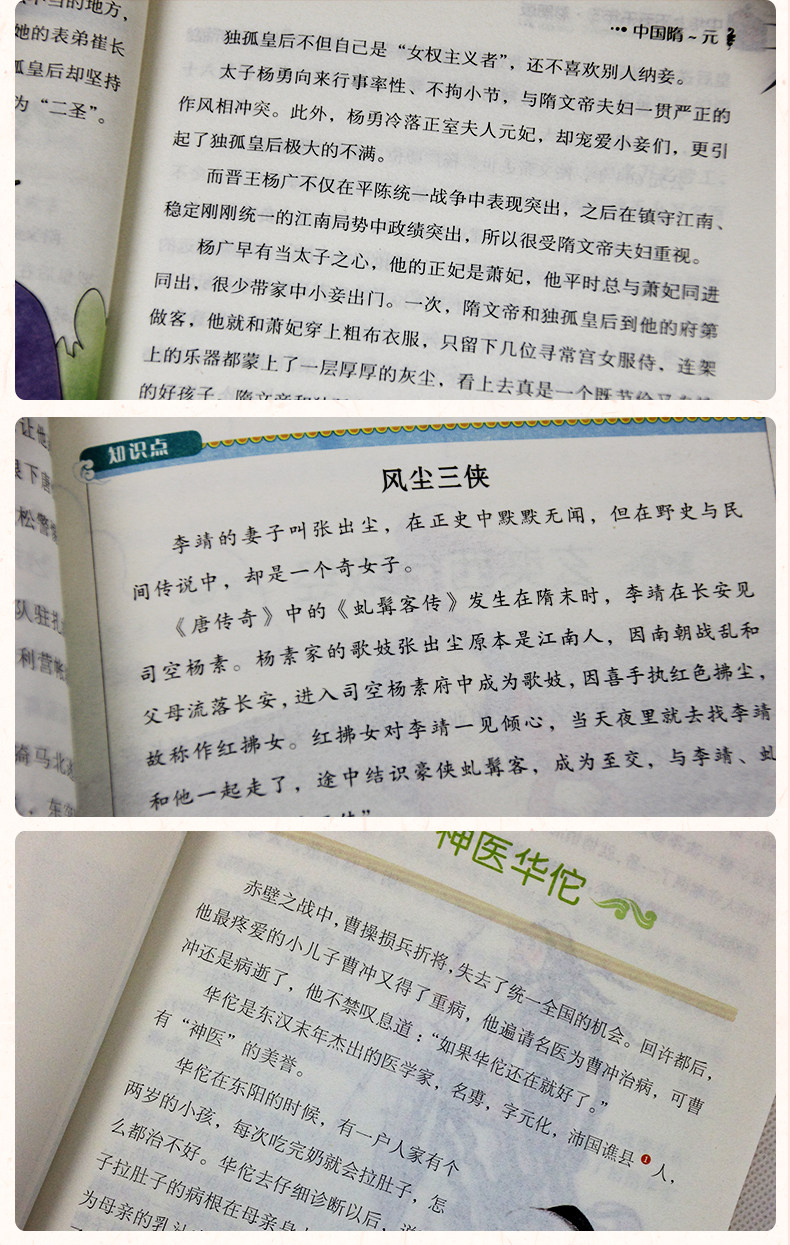 不当的地方，
她的表弟崔长
孤皇后却坚持
为“二圣”。
••• 中国隋～元
独孤皇后不但自己是“女权主义者”，还不喜欢别人纳妾。
太子杨勇向来行事率性、不拘小节，与隋文帝夫妇一贯严正的
作风相冲突。此外，杨勇冷落正室夫人元妃，却宠爱小妾们，更引
起了独孤皇后极大的不满。
而晋王杨广不仅在平陈统一战争中表现突出，之后在镇守江南、
稳定刚刚统一的江南局势中政绩突出，所以很受隋文帝夫妇重视。
杨广早有当太子之心，他的正妃是萧妃，他平时总与萧妃同进
同出，很少带家中小妾出门。一次，隋文帝和独孤皇后到他的府第
做客，他就和萧妃穿上粗布衣服，只留下几位寻常宫女服侍，连架
上的乐器都蒙上了一层厚厚的灰尘，看上去真是一个既节俭又
的好孩子。隋文帝和独
让他
下唐
松警
队驻扎
利营帐
骑马北
知识点
风尘三侠
李靖的妻子叫张出尘，在正史中默默无闻，但在野史与民
间传说中，却是一个奇女子。
《唐传奇》中的《虬髯客传》发生在隋末时，李靖在长安见
司空杨素。杨素家的歌妓张出尘原本是江南人，因南朝战乱和
父母流落长安，进入司空杨素府中成为歌妓，因喜手执红色拂尘，
故称作红拂女。红拂女对李靖一见倾心，当天夜里就去找李靖
和他一起走了，途中结识豪侠虬髯客，成为至交，与李靖、虬
神医华佗
赤壁之战中，曹操损兵折将，失去了统一全国的机会。回许都后，
他最疼爱的小儿子曹冲又得了重病，他遍请名医为曹冲治病，可曹
冲还是病逝了，他不禁叹息道：“如果华佗还在就好了。”
华佗是东汉末年杰出的医学家，名旉，字元化，沛国谯县❶人，
有“神医”的美誉。
华佗在东阳的时候，有一户人家有个
两岁的小孩，每次吃完奶就会拉肚子，怎
么都治不好。华佗去仔细诊断以后，说
子拉肚子的病根在母亲身上
为母亲的乳汁